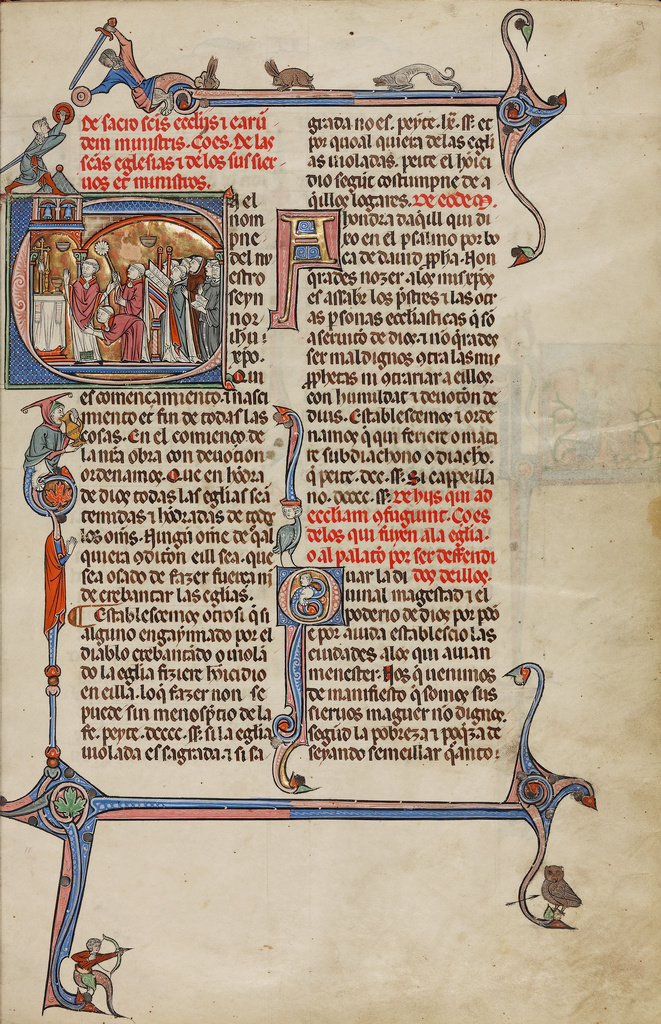 De sacro scis ecclijs ⁊ earū
dem ministris. Coes. De las
scās eglesias ⁊ de los sus sier
uos et ministros.
el
nom
pne
del nr̄
estro
seyn
nor
ihu
xp̄o.
Qui
es començamiento. ⁊ nasci
miento et fin de todas las
cosas. En el comienço de
la nr̄a obra con deuocion
ordenamos. Que en hōdra
de dios todas las eglias seā
temidas ⁊ hōdradas de todos
los oms. Ningū ome de qal
quiera ꝯditōn eill sea. que
sea osado de fazer fuerça ni
de crebantar las eglias.
Establescemos otrosi q̄ si
alguno engaynnado por el
diablo crebantado o uiola
do la eglia fiziere hōicidio
en eilla. lo q̄ fazer non se
puede sin menosp̄cio de la
fe. peyte. dcccc. ss. si la eglia
uiolada es sagrada. ⁊ si sa
grada no es. peyte. lx̄. ss. et
por qual quiera de las egli
as uioladas. peite el hōici
dio segūt costumpne de a
qillos logares. De eodem.
A hondra daqill qui di
xo en el psalmo por bo
ca de dauid pp̄ha. Non
qrades nozer. alos mis xpos
es assabr los p̄stres ⁊ las otr
as p̄sonas ecclesiasticas q̄ sō
a seruicio de dios. ⁊ nō q̄rades
ser maldignos ꝯtra las mis
pp̄hetas ni ꝯtrariar a eillos.
con humildat ⁊ deuotōn de
diuis. Establescemos ⁊ orde
namos q̄ qui feriere o mata
re subdiachono o diachō.
q̄ peite. dcc. ss. Si cappeilla
no. dcccc. ss. De hijs qui ad
eccliam ꝯfugiunt. Coes
delos qui fuyen a la eglia.
o al palatō por ser deffendi
dos de illos.
Quar la di
uinal magestad ⁊ el
poderio de dios por pp̄o
⁊ por aiuda establescio las
ciudades alos qui auian
menester. Nos q̄ uenimos
de manifiesto q̄ somos sus
sieruos maguer nō dignos.
segūd la pobreza ⁊ poq̄za de
seyando semeillar qanto: